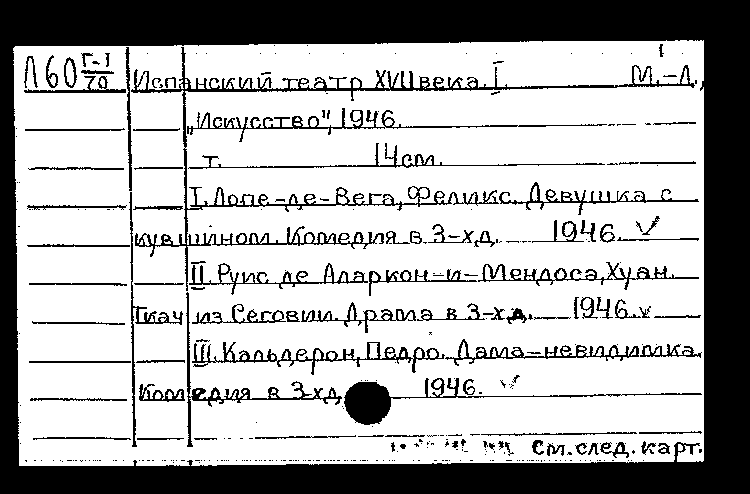 Л60 Г-I/70 Испанский театр XVII века. I. М.-Л.,
„Искусство", 1946.
т. 14см.
I. Лопе-де-Вега, Феликс. Девушка с
кувшином. Комедия в 3-х д. 1946. ✓
II. Руис де Аларкон-и-Мендоса, Хуан.
Ткач из Сеговии. Драма в 3-х д. 1946. ✓
III. Кальдерон, Педро. Дама-невидимка.
Комедия в 3-х д. 1946. ✓
См. след. карт.